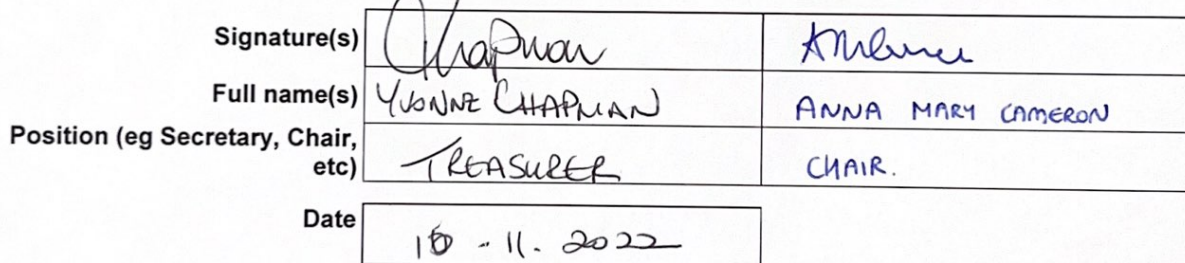 Signature(s) Chapman
Full name(s) YVONNE CHAPMAN ANNA MARY CAMERON
Position (eg Secretary, Chair,
etc) TREASURER CHAIR.
Date -11. 2022